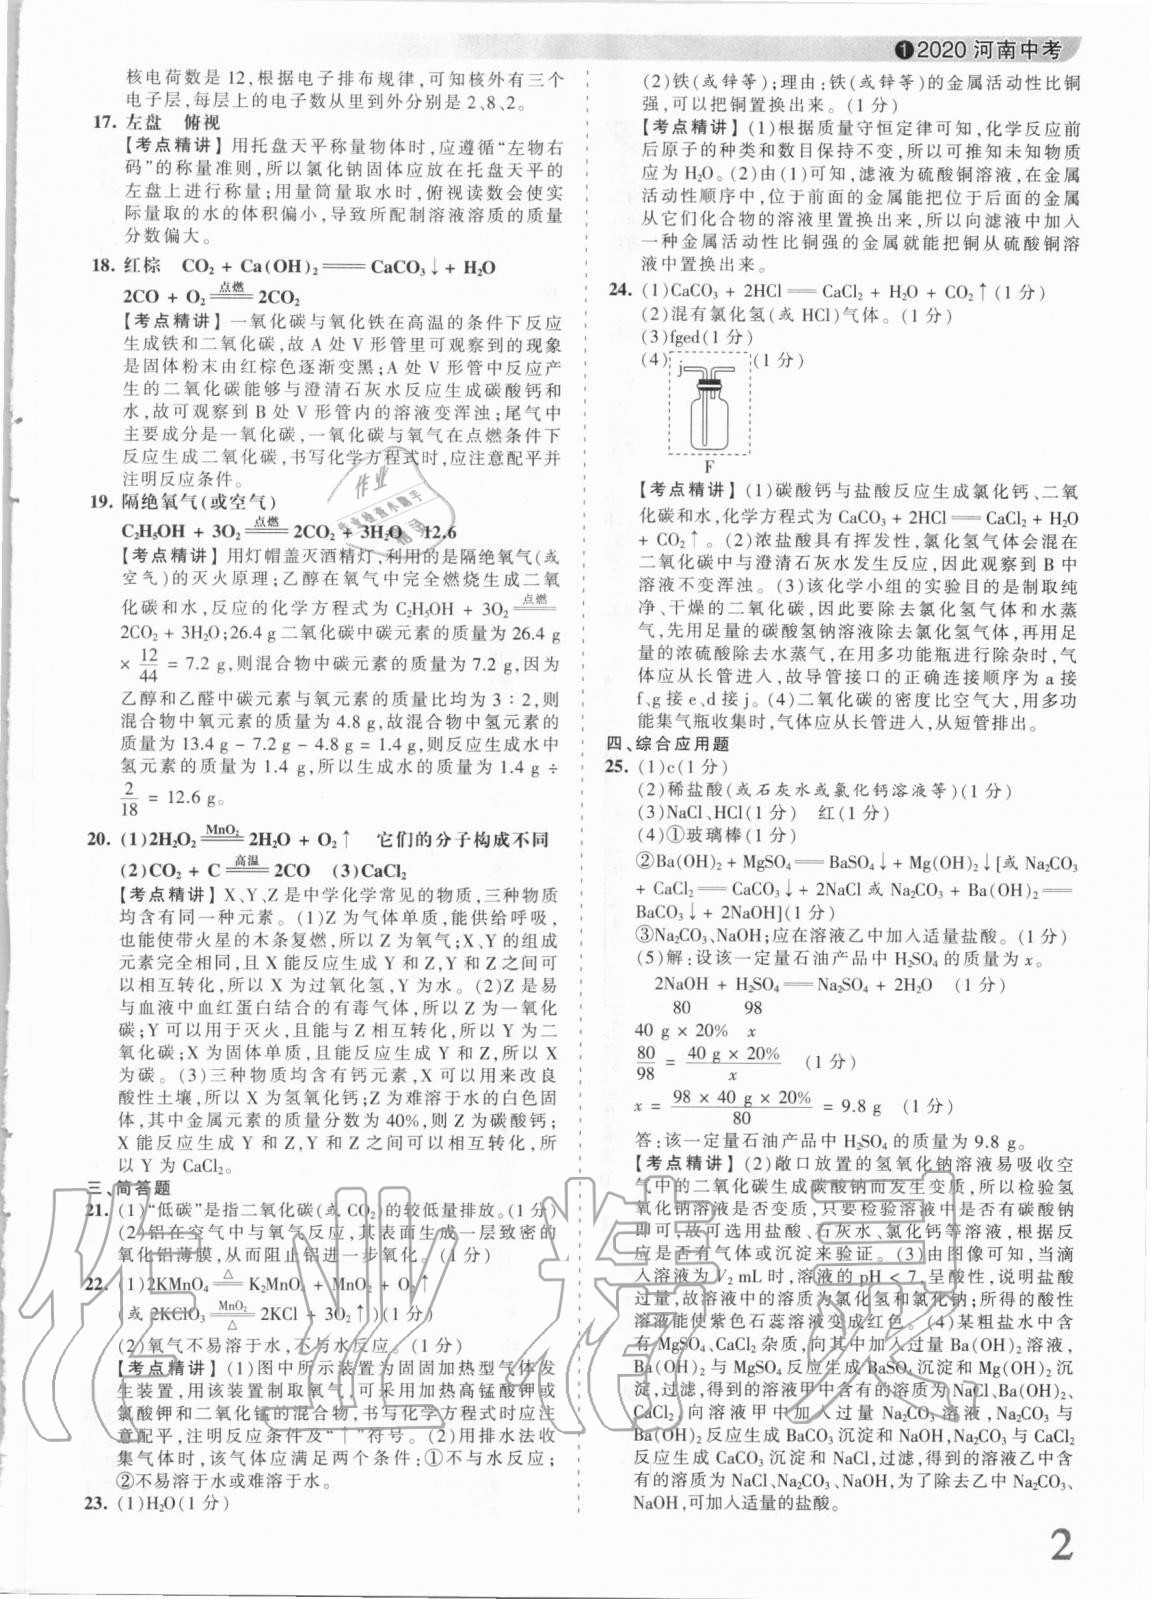 ❶2020 河南中考
核电荷数是 12,根据电子排布规律,可知核外有三个
电子层,每层上的电子数从里到外分别是 2、8、2。
17. 左盘　俯视
【考点精讲】用托盘天平称量物体时,应遵循“左物右
码”的称量准则,所以氯化钠固体应放在托盘天平的
左盘上进行称量;用量筒量取水时,俯视读数会使实
际量取的水的体积偏小,导致所配制溶液溶质的质量
分数偏大。
18. 红棕　CO₂ + Ca(OH)₂ ═══ CaCO₃↓ + H₂O
2CO + O₂ ═点燃═ 2CO₂
【考点精讲】一氧化碳与氧化铁在高温的条件下反应
生成铁和二氧化碳,故 A 处 V 形管里可观察到的现象
是固体粉末由红棕色逐渐变黑;A 处 V 形管中反应产
生的二氧化碳能够与澄清石灰水反应生成碳酸钙和
水,故可观察到 B 处 V 形管内的溶液变浑浊;尾气中
主要成分是一氧化碳,一氧化碳与氧气在点燃条件下
反应生成二氧化碳,书写化学方程式时,应注意配平并
注明反应条件。
19. 隔绝氧气(或空气)
C₂H₅OH + 3O₂ ═点燃═ 2CO₂ + 3H₂O　12.6
【考点精讲】用灯帽盖灭酒精灯,利用的是隔绝氧气(或
空气)的灭火原理;乙醇在氧气中完全燃烧生成二氧
化碳和水,反应的化学方程式为 C₂H₅OH + 3O₂ ═点燃═
2CO₂ + 3H₂O;26.4 g 二氧化碳中碳元素的质量为 26.4 g
× 12/44 = 7.2 g,则混合物中碳元素的质量为 7.2 g,因为
乙醇和乙醛中碳元素与氧元素的质量比均为 3∶2,则
混合物中氧元素的质量为 4.8 g,故混合物中氢元素的
质量为 13.4 g - 7.2 g - 4.8 g = 1.4 g,则反应生成水中
氢元素的质量为 1.4 g,所以生成水的质量为 1.4 g ÷
2/18 = 12.6 g。
20. (1)2H₂O₂ ═MnO₂═ 2H₂O + O₂↑　它们的分子构成不同
(2)CO₂ + C ═高温═ 2CO　(3)CaCl₂
【考点精讲】X、Y、Z 是中学化学常见的物质,三种物质
均含有同一种元素。(1)Z 为气体单质,能供给呼吸,
也能使带火星的木条复燃,所以 Z 为氧气;X、Y 的组成
元素完全相同,且 X 能反应生成 Y 和 Z,Y 和 Z 之间可
以相互转化,所以 X 为过氧化氢,Y 为水。(2)Z 是易
与血液中血红蛋白结合的有毒气体,所以 Z 为一氧化
碳;Y 可以用于灭火,且能与 Z 相互转化,所以 Y 为二
氧化碳;X 为固体单质,且能反应生成 Y 和 Z,所以 X
为碳。(3)三种物质均含有钙元素,X 可以用来改良
酸性土壤,所以 X 为氢氧化钙;Z 为难溶于水的白色固
体,其中金属元素的质量分数为 40%,则 Z 为碳酸钙;
X 能反应生成 Y 和 Z,Y 和 Z 之间可以相互转化,所
以 Y 为 CaCl₂。
三、简答题
21. (1)“低碳”是指二氧化碳(或 CO₂)的较低量排放。(1 分)
(2)铝在空气中与氧气反应,其表面生成一层致密的
氧化铝薄膜,从而阻止铝进一步氧化。(1 分)
22. (1)2KMnO₄ ═△═ K₂MnO₄ + MnO₂ + O₂↑
(或 2KClO₃ ═MnO₂/△═ 2KCl + 3O₂↑)(1 分)
(2)氧气不易溶于水,且不与水反应。(1 分)
【考点精讲】(1)图中所示装置为固固加热型气体发
生装置,用该装置制取氧气,可采用加热高锰酸钾或
氯酸钾和二氧化锰的混合物,书写化学方程式时应注
意配平,注明反应条件及“↑”符号。(2)用排水法收
集气体时,该气体应满足两个条件:①不与水反应;
②不易溶于水或难溶于水。
23. (1)H₂O(1 分)
(2)铁(或锌等);理由:铁(或锌等)的金属活动性比铜
强,可以把铜置换出来。(1 分)
【考点精讲】(1)根据质量守恒定律可知,化学反应前
后原子的种类和数目保持不变,所以可推知未知物质
应为 H₂O。(2)由(1)可知,滤液为硫酸铜溶液,在金属
活动性顺序中,位于前面的金属能把位于后面的金属
从它们化合物的溶液里置换出来,所以向滤液中加入
一种金属活动性比铜强的金属就能把铜从硫酸铜溶
液中置换出来。
24. (1)CaCO₃ + 2HCl ═══ CaCl₂ + H₂O + CO₂↑(1 分)
(2)混有氯化氢(或 HCl)气体。(1 分)
(3)fged(1 分)
(4) j (1 分)
F
【考点精讲】(1)碳酸钙与盐酸反应生成氯化钙、二氧
化碳和水,化学方程式为 CaCO₃ + 2HCl ═══ CaCl₂ + H₂O
+ CO₂↑。(2)浓盐酸具有挥发性,氯化氢气体会混在
二氧化碳中与澄清石灰水发生反应,因此观察到 B 中
溶液不变浑浊。(3)该化学小组的实验目的是制取纯
净、干燥的二氧化碳,因此要除去氯化氢气体和水蒸
气,先用足量的碳酸氢钠溶液除去氯化氢气体,再用足
量的浓硫酸除去水蒸气,在用多功能瓶进行除杂时,气
体应从长管进入,故导管接口的正确连接顺序为 a 接
f、g 接 e、d 接 j。(4)二氧化碳的密度比空气大,用多功
能集气瓶收集时,气体应从长管进入,从短管排出。
四、综合应用题
25. (1)c(1 分)
(2)稀盐酸(或石灰水或氯化钙溶液等)(1 分)
(3)NaCl、HCl(1 分)　红(1 分)
(4)①玻璃棒(1 分)
②Ba(OH)₂ + MgSO₄ ═══ BaSO₄↓ + Mg(OH)₂↓[或 Na₂CO₃
+ CaCl₂ ═══ CaCO₃↓ + 2NaCl 或 Na₂CO₃ + Ba(OH)₂ ═══
BaCO₃↓ + 2NaOH](1 分)
③Na₂CO₃、NaOH;应在溶液乙中加入适量盐酸。(1 分)
(5)解:设该一定量石油产品中 H₂SO₄ 的质量为 x。
2NaOH + H₂SO₄ ═══ Na₂SO₄ + 2H₂O　(1 分)
80　98
40 g × 20%　x
80/98 = 40 g × 20%/x　(1 分)
x = 98 × 40 g × 20%/80 = 9.8 g　(1 分)
答:该一定量石油产品中 H₂SO₄ 的质量为 9.8 g。
【考点精讲】(2)敞口放置的氢氧化钠溶液易吸收空
气中的二氧化碳生成碳酸钠而发生变质,所以检验氢
氧化钠溶液是否变质,只要检验溶液中是否有碳酸钠
即可,故可选用盐酸、石灰水、氯化钙等溶液,根据反
应是否有气体或沉淀来验证。(3)由图像可知,当滴
入溶液为 V₂ mL 时,溶液的 pH < 7,呈酸性,说明盐酸
过量,故溶液中的溶质为氯化氢和氯化钠;所得的酸性
溶液能使紫色石蕊溶液变成红色。(4)某粗盐水中含
有 MgSO₄、CaCl₂ 杂质,向其中加入过量 Ba(OH)₂ 溶液,
Ba(OH)₂ 与 MgSO₄ 反应生成 BaSO₄ 沉淀和 Mg(OH)₂ 沉
淀,过滤,得到的溶液甲中含有的溶质为 NaCl、Ba(OH)₂、
CaCl₂;向溶液甲中加入过量 Na₂CO₃ 溶液,Na₂CO₃ 与
Ba(OH)₂ 反应生成 BaCO₃ 沉淀和 NaOH,Na₂CO₃ 与 CaCl₂
反应生成 CaCO₃ 沉淀和 NaCl,过滤,得到的溶液乙中含
有的溶质为 NaCl、Na₂CO₃、NaOH,为了除去乙中 Na₂CO₃、
NaOH,可加入适量的盐酸。
2
作业精灵
作业
作业检查小助手